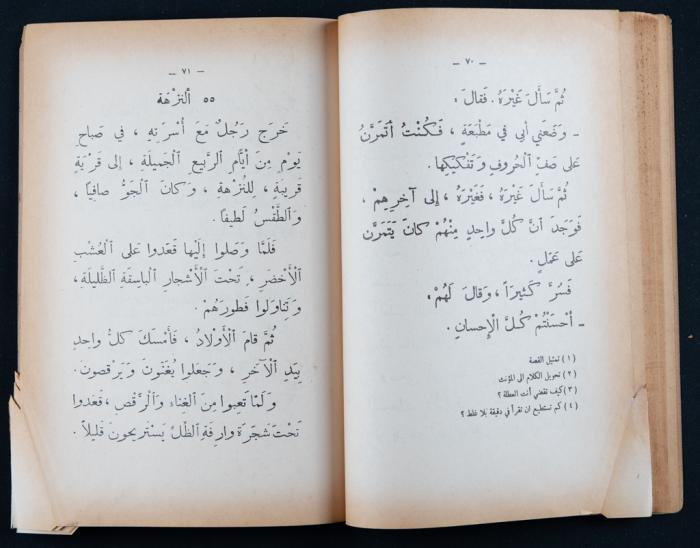 – ٧٠ –
ثُمَّ سَأَلَ غَيْرَهُ . فَقالَ :
ـ وَضَعَني أَبي في مَطْبَعَةٍ ، فَكُنْتُ أَتَمَرَّنُ
عَلى صَفِّ الْحُروفِ وَتَفْكيكِها.
ثُمَّ سَأَلَ غَيْرَهُ ، فَغَيْرَهُ ، إِلى آخِرِهِمْ ،
فَوَجَدَ أَنَّ كُلَّ واحِدٍ مِنْهُمْ كانَ يَتَمَرَّنُ
عَلى عَمَلٍ .
فَسُرَّ كَثيراً ، وَقالَ لَهُمْ :
ـ أَحْسَنْتُمْ كُلَّ الْإِحسانِ .
(١) تمثيل القصة
(٢) تحويل الكلام الى المؤنث
(٣) كيف تقضي أنت العطلة ؟
(٤) كم تستطيع ان تقرأ في دقيقة بلا غلط ؟
– ٧١ –
٥٥ اَلنُّزْهَة
خَرَجَ رَجُلٌ مَعَ أُسْرَتِهِ ، في صَباحِ
يَوْمٍ مِنْ أَيَّامِ الرَّبيعِ الْجَميلَةِ ، إِلى قَرْيَةٍ
قَريبَةٍ ، لِلنُّزْهَةِ ، وَكانَ الْجَوُّ صافِياً ،
وَالطَّقْسُ لَطيفاً .
فَلَمَّا وَصَلوا إِلَيْها قَعَدوا عَلى الْعُشْبِ
الْأَخْضَرِ ، تَحْتَ الْأَشْجارِ الْباسِقَةِ الظَّليلَةِ ،
وَتَناوَلوا فَطورَهُمْ .
ثُمَّ قامَ الْأَوْلادُ ، فَأَمْسَكَ كُلُّ واحِدٍ
بِيَدِ الْآخَرِ ، وَجَعَلوا يُغَنُّونَ وَيَرْقُصون .
وَلَمَّا تَعِبوا مِنَ الْغِناءِ وَالرَّقْصِ ، قَعَدوا
تَحْتَ شَجَرَةٍ وارِفَةِ الظِّلِّ يَسْتَريحونَ قَليلاً .